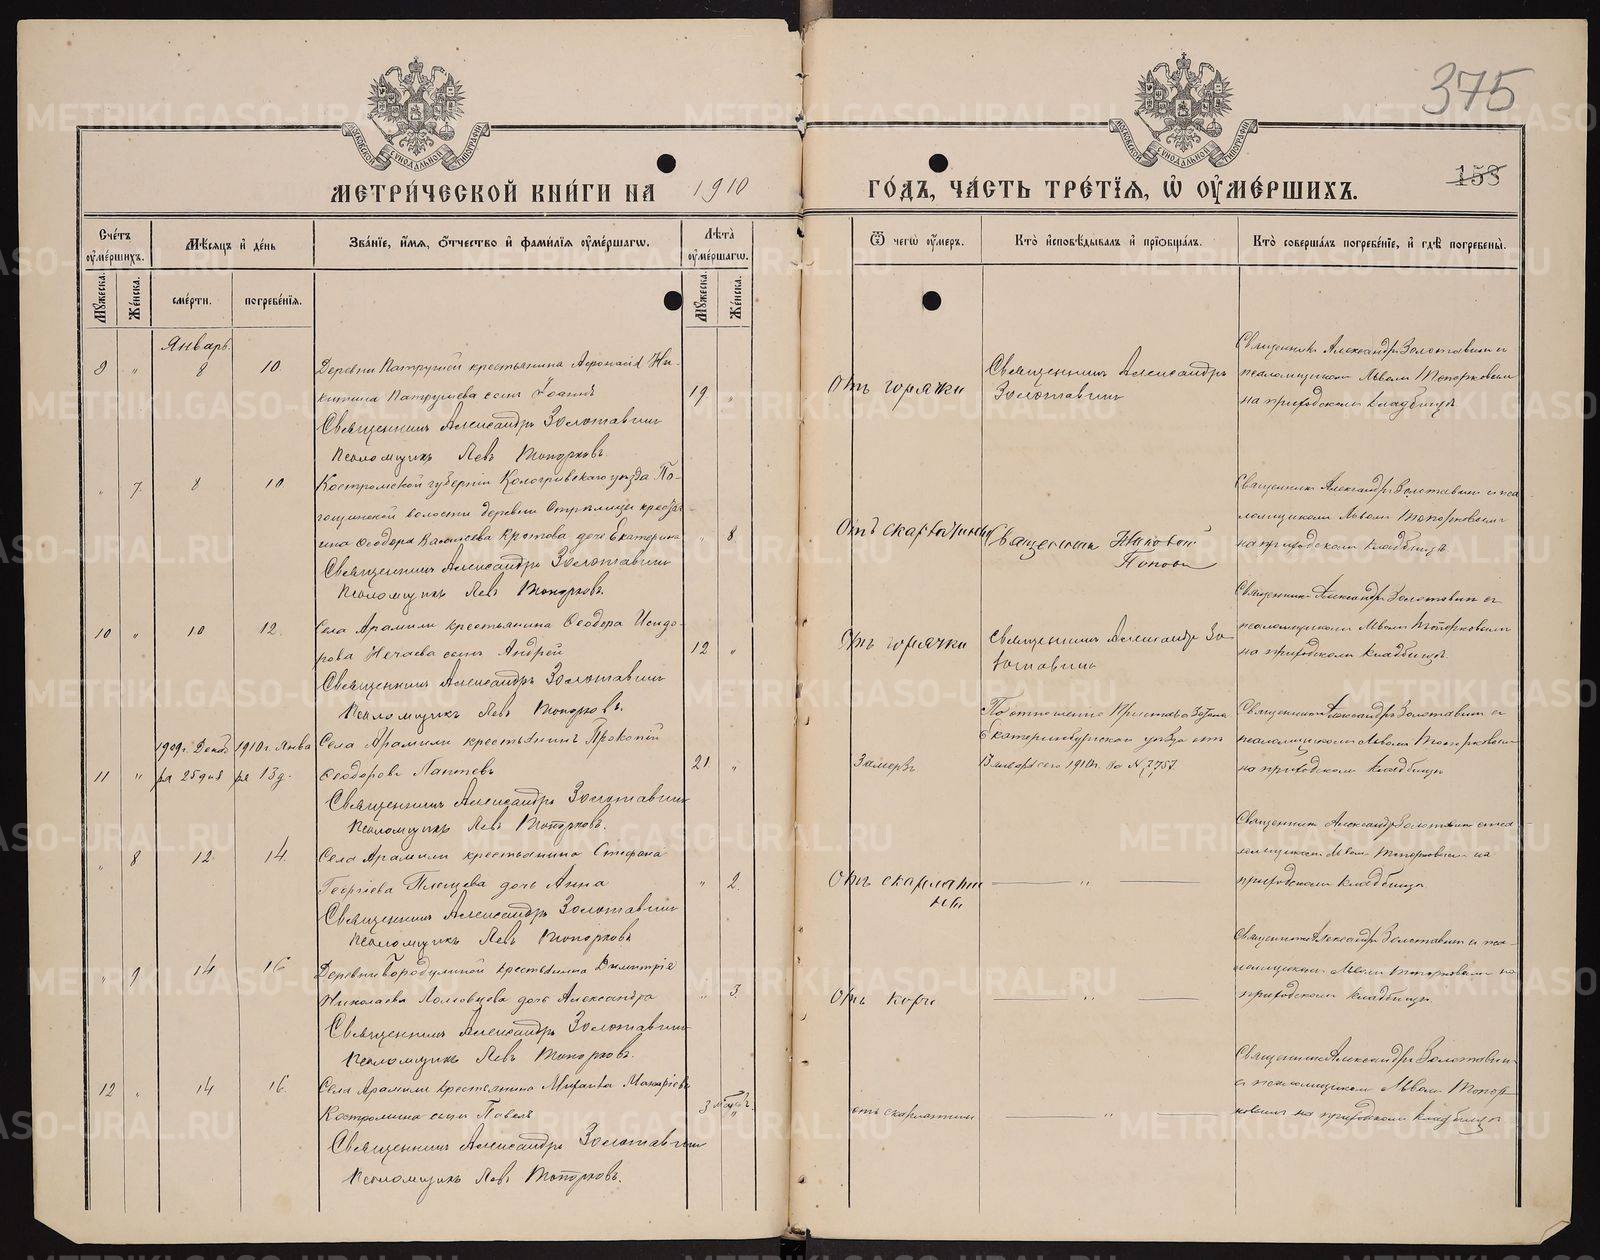 375
153
МЕТРИ́ЧЕСКОЙ КНИ́ГИ НА 1910
ГО́ДЪ, ЧА́СТЬ ТРЕ́ТЇѦ, Ѡ҆ ОУ҆МЕ́РШИХЪ.
Сче́тъ оу҆ме́ршихъ.
Мѣ́сѧцъ и҆ де́нь
Зва́нїе, и҆́мѧ, ѻ҆́тчество и҆ фами́лїѧ оу҆ме́ршагѡ.
Лѣ́та оу҆ме́ршагѡ.
Ѿ чегѡ̀ оу҆́меръ.
Кто̀ и҆сповѣ́дывалъ и҆ прїѻбща́лъ.
Кто̀ соверша́лъ погребе́нїе, и҆ гдѣ̀ погребены̀.
Мꙋ́жеска.
Же́нска.
сме́рти.
погребе́нїѧ.
Мꙋ́жеска.
Же́нска.
Январь.
9 „ 8 10. Деревни Патрушей крестьянина Афонасія Ни-
китина Патрушева сынъ Іоаннъ 19 „
Священникъ Александръ Золотавинъ
Псаломщикъ Левъ Топорковъ.
Отъ горячки
Священникъ Александръ
Золотавинъ
Священникъ Александръ Золотавинъ съ
псаломщикомъ Львомъ Топорковымъ
на приходскомъ кладбищѣ
„ 7. 8 10. Костромской губерніи Кологривскаго уѣзда
волости деревни
Ѳеодора дочь Екатерина „ 8
Священникъ Александръ Золотавинъ
Псаломщикъ Левъ Топорковъ.
Отъ скарлатины
Священникъ
Поповъ
Священникъ Александръ Золотавинъ съ пса
ломщикомъ Львомъ Топорковымъ
на приходскомъ кладбищѣ
10 „ 10 12. Села Арамили крестьянина Ѳеодора Исидо-
рова Нечаева сынъ Андрей 12 „
Священникъ Александръ Золотавинъ
Псаломщикъ Левъ Топорковъ.
Отъ горячки
Священникъ Александръ Зо-
лотавинъ
Священникъ Александръ Золотавинъ съ
псаломщикомъ Львомъ Топорковымъ
на приходскомъ кладбищѣ
1909 г. Декаб 1910 г. Янва Села Арамили крестьянинъ Прокопій
11 „ ря 25 дня ря 13 д. Ѳеодоровъ Лаптевъ 21. „
Священникъ Александръ Золотавинъ
Псаломщикъ Левъ Топорковъ.
Замерзъ
По отношенію
Екатеринбургскаго уѣзда отъ
13 января сего 1910 г. за №
Священникъ Александръ Золотавинъ съ
псаломщикомъ Львомъ Топорковымъ
на приходскомъ кладбищѣ
„ 8 12. 14. Села Арамили крестьянина Стефана
Георгіева Плещева дочь Анна „ 2.
Священникъ Александръ Золотавинъ
Псаломщикъ Левъ Топорковъ
Отъ скарлати
ны
„
Священникъ Александръ Золотавинъ съ пса
ломщикомъ Львомъ Топорковымъ на
приходскомъ кладбищѣ
„ 9 14 16 Деревни Бородулиной крестьянина Димитрія
Николаева Ломовцева дочь Александра „ 3.
Священникъ Александръ Золотавинъ
Псаломщикъ Левъ Топорковъ.
Отъ кори
„
Священникъ Александръ Золотавинъ съ пса-
ломщикомъ Львомъ Топорковымъ на
приходскомъ кладбищѣ.
12 „ 14 16. Села Арамили крестьянина Михаила Макаріева
Костромина сынъ Павелъ 3 „
Священникъ Александръ Золотавинъ
Псаломщикъ Левъ Топорковъ.
отъ скарлатины
„
Священникъ Александръ Золотавинъ
съ псаломщикомъ Львомъ Топор
ковымъ на приходскомъ кладбищѣ
METRIKI.GASO-URAL.RU